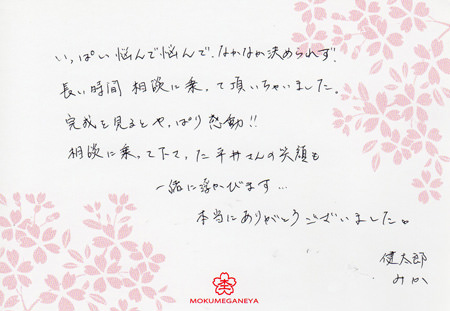 いっぱい悩んで悩んで、なかなか決められず、
長い時間 相談に乗って頂いちゃいました。
完成を見るとやっぱり感動!!
相談に乗って下さった平井さんの笑顔も
一緒に浮かびます…
本当にありがとうございました。
健太郎
みか
MOKUMEGANEYA